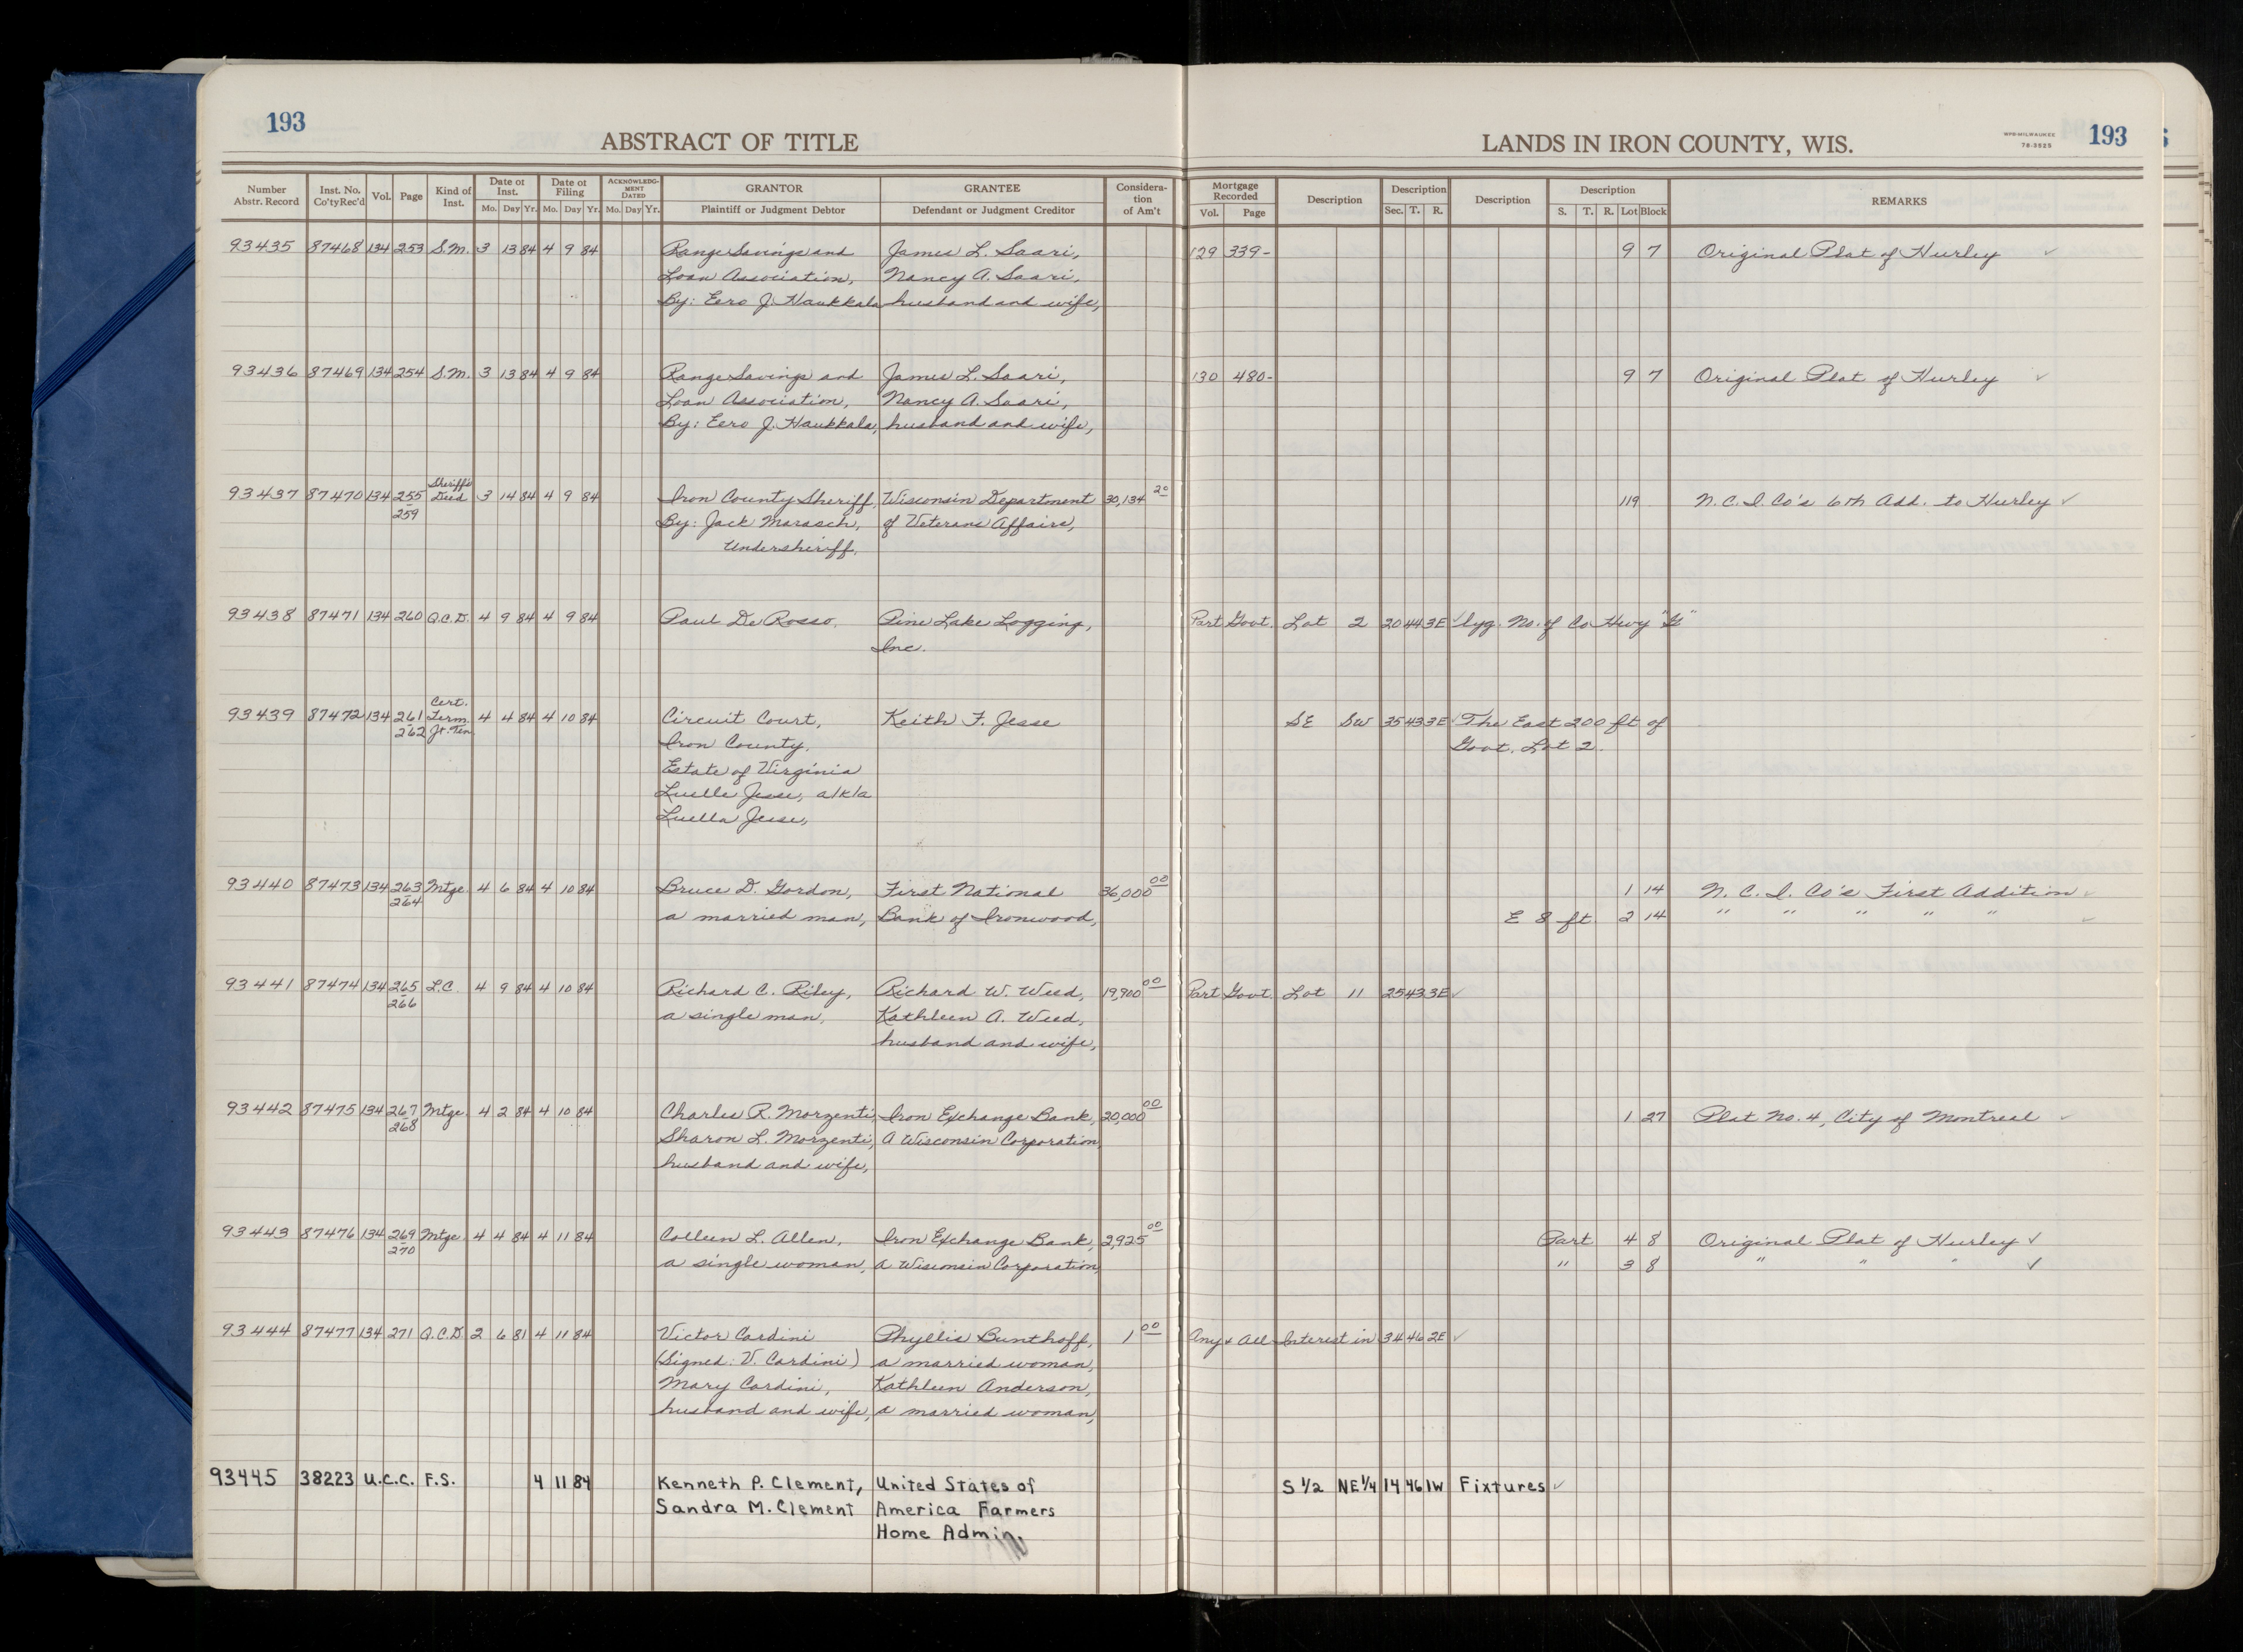 193
193
ABSTRACT OF TITLE
LANDS IN IRON COUNTY, WIS.
WPB-MILWAUKEE
78-3525
Number Abstr. Record Inst. No. Co'ty Rec'd Vol. Page Kind of Inst. Date of Inst. Mo. Day Yr. Date of Filing Mo. Day Yr. ACKNOWLEDGMENT DATED Mo. Day Yr. GRANTOR Plaintiff or Judgment Debtor GRANTEE Defendant or Judgment Creditor Consideration of Am't Mortgage Recorded Vol. Page Description Description Sec. T. R. Description Description S. T. R. Lot Block REMARKS
93435 87468 134 253 S.M. 3 13 84 4 9 84 Range Savings and James L. Saari, 129 339- 9 7 Original Plat of Hurley ✓
Loan Association, Nancy A. Saari,
By: Eero J. Haukkala husband and wife,
93436 87469 134 254 S.M. 3 13 84 4 9 84 Range Savings and James L. Saari, 130 480- 9 7 Original Plat of Hurley ✓
Loan Association, Nancy A. Saari,
By: Eero J. Haukkala, husband and wife,
93437 87470 134 255-259 Sheriff's Deed 3 14 84 4 9 84 Iron County Sheriff, Wisconsin Department 30,134 20 119 N.C.I. Co's 6th Add. to Hurley ✓
By: Jack Marasch, of Veterans Affairs,
Undersheriff,
93438 87471 134 260 Q.C.D. 4 9 84 4 9 84 Paul De Rosso, Pine Lake Logging, Part Govt. Lot 2 20 44 3E ✓ lyg. No. of Co Hwy "G"
Inc.
93439 87472 134 261-262 Cert. Term. Jt. Ten. 4 4 84 4 10 84 Circuit Court, Keith F. Jesse SE SW 35 43 3E ✓ The East 200 ft of
Iron County, Govt. Lot 2.
Estate of Virginia
Luelle Jesse, a/k/a
Luella Jesse,
93440 87473 134 263-264 Mtge. 4 6 84 4 10 84 Bruce D. Gordon, First National 36,000 00 1 14 N.C.I. Co's First Addition ✓
a married man, Bank of Ironwood, E 8 ft. 2 14 " " " " " ✓
93441 87474 134 265-266 L.C. 4 9 84 4 10 84 Richard C. Riley, Richard W. Weed, 19,900 00 Part Govt. Lot 11 25 43 3E ✓
a single man, Kathleen A. Weed,
husband and wife,
93442 87475 134 267-268 Mtge. 4 2 84 4 10 84 Charles R. Morzenti, Iron Exchange Bank, 20,000 00 1 27 Plat No. 4, City of Montreal ✓
Sharon L. Morzenti, A Wisconsin Corporation,
husband and wife,
93443 87476 134 269-270 Mtge. 4 4 84 4 11 84 Colleen L. Allen, Iron Exchange Bank, 2,925 00 Part 4 8 Original Plat of Hurley ✓
a single woman, a Wisconsin Corporation, " 3 8 " " " ✓
93444 87477 134 271 Q.C.D. 2 6 81 4 11 84 Victor Cardini Phyllis Bunthoff, 1 00 Any & All Interest in 34 46 2E ✓
(Signed: V. Cardini) a married woman,
Mary Cardini, Kathleen Anderson,
husband and wife, a married woman,
93445 38223 U.C.C. F.S. 4 11 84 Kenneth P. Clement, United States of S 1/2 NE 1/4 14 46 1W Fixtures ✓
Sandra M. Clement America Farmers
Home Admin.